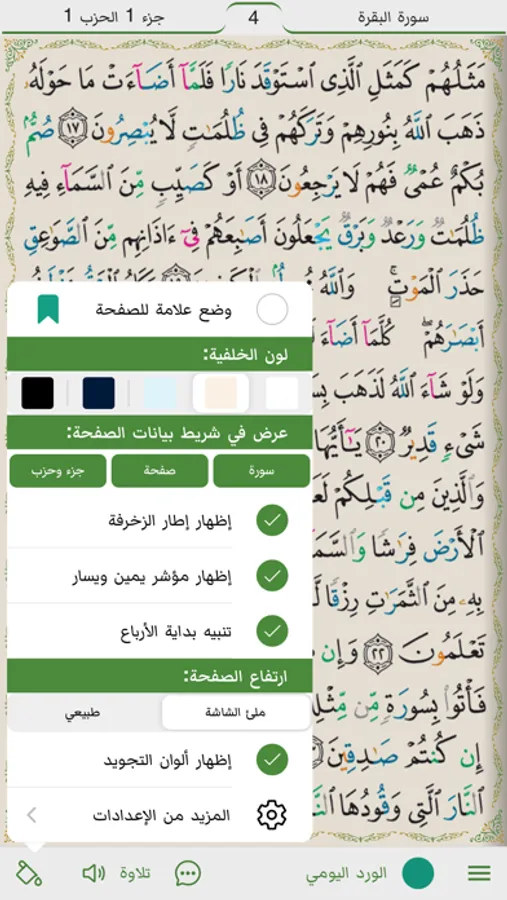 سورة البقرة
4
جزء 1 الحزب 1
مَثَلُهُمْ كَمَثَلِ ٱلَّذِى ٱسْتَوْقَدَ نَارًا فَلَمَّآ أَضَآءَتْ مَا حَوْلَهُۥ
ذَهَبَ ٱللَّهُ بِنُورِهِمْ وَتَرَكَهُمْ فِى ظُلُمَـٰتٍ لَّا يُبْصِرُونَ ١٧ صُمٌّۢ
بُكْمٌ عُمْىٌ فَهُمْ لَا يَرْجِعُونَ ١٨ أَوْ كَصَيِّبٍ مِّنَ ٱلسَّمَآءِ فِيهِ
ظُلُمَـٰتٌ وَرَعْدٌ وَبَرْقٌ يَجْعَلُونَ أَصَـٰبِعَهُمْ فِىٓ ءَاذَانِهِم مِّنَ ٱلصَّوَٰعِقِ
حَذَرَ ٱلْمَوْتِ ۚ وَٱللَّهُ
أَبْصَـٰرَهُمْ ۖ كُلَّمَآ أَضَآءَ
وَلَوْ شَآءَ ٱللَّهُ لَذَهَبَ
شَىْءٍ قَدِيرٌ ٢٠ يَـٰٓأَيُّهَا
وَٱلَّذِينَ مِن قَبْلِكُمْ
ٱلْأَرْضَ فِرَٰشًا
بِهِۦ مِنَ ٱلثَّمَرَٰتِ رِزْقًا
تَعْلَمُونَ ٢٢ وَإِن
فَأْتُوا۟ بِسُورَةٍ مِّن
إِن كُنتُمْ صَـٰدِقِينَ
ٱلنَّارَ ٱلَّتِى وَقُودُهَا
وضع علامة للصفحة
لون الخلفية:
عرض في شريط بيانات الصفحة:
سورة
صفحة
جزء وحزب
إظهار إطار الزخرفة
إظهار مؤشر يمين ويسار
تنبيه بداية الأرباع
ارتفاع الصفحة:
ملئ الشاشة
طبيعي
إظهار ألوان التجويد
المزيد من الإعدادات
الورد اليومي
تلاوة